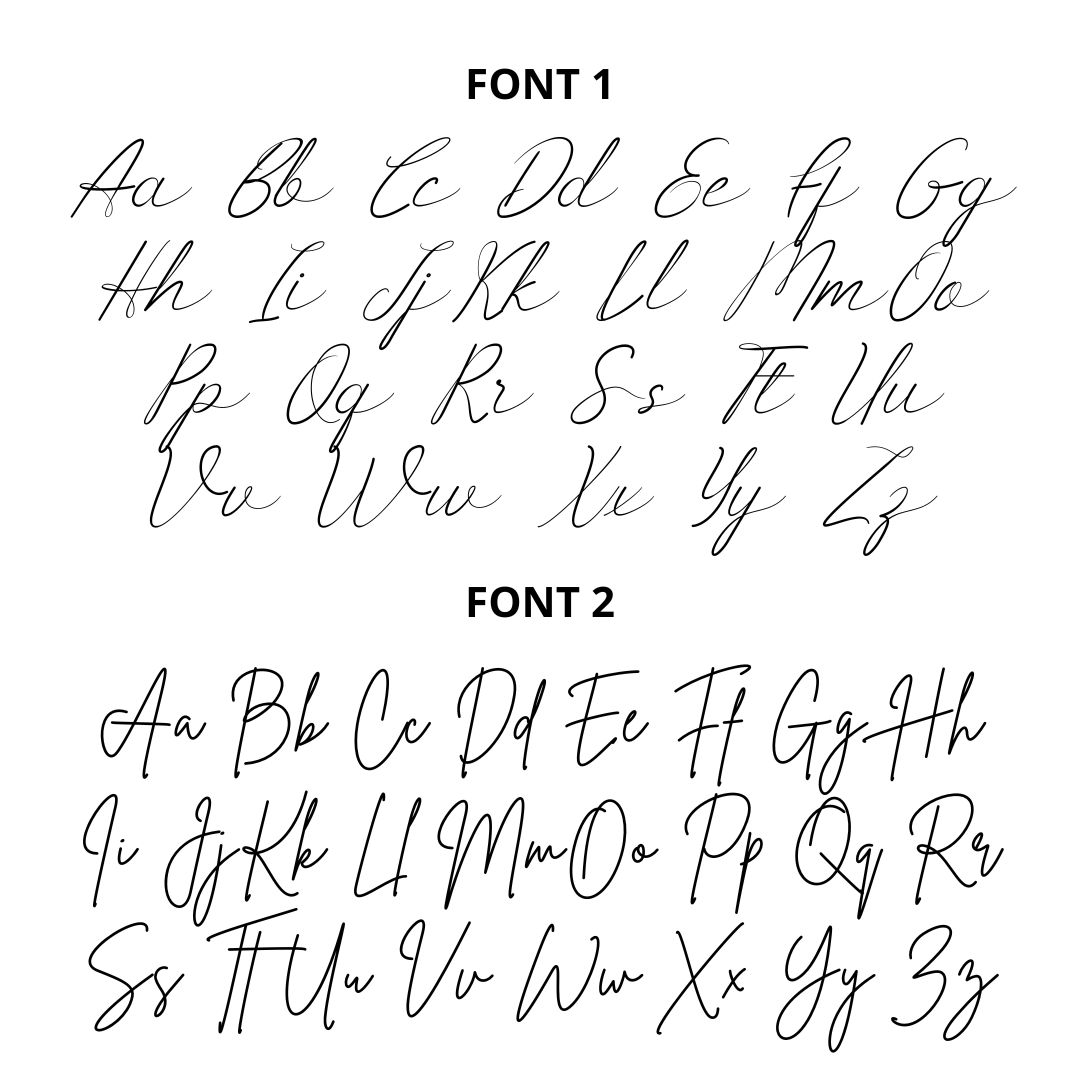 FONT 1
Aa Bb Cc Dd Ee Ff Gg
Hh Ii Jj Kk Ll Mm Oo
Pp Qq Rr Ss Tt Uu
Vv Ww Xx Yy Zz
FONT 2
Aa Bb Cc Dd Ee Ff Gg Hh
Ii Jj Kk Ll Mm Oo Pp Qq Rr
Ss Tt Uu Vv Ww Xx Yy Zz